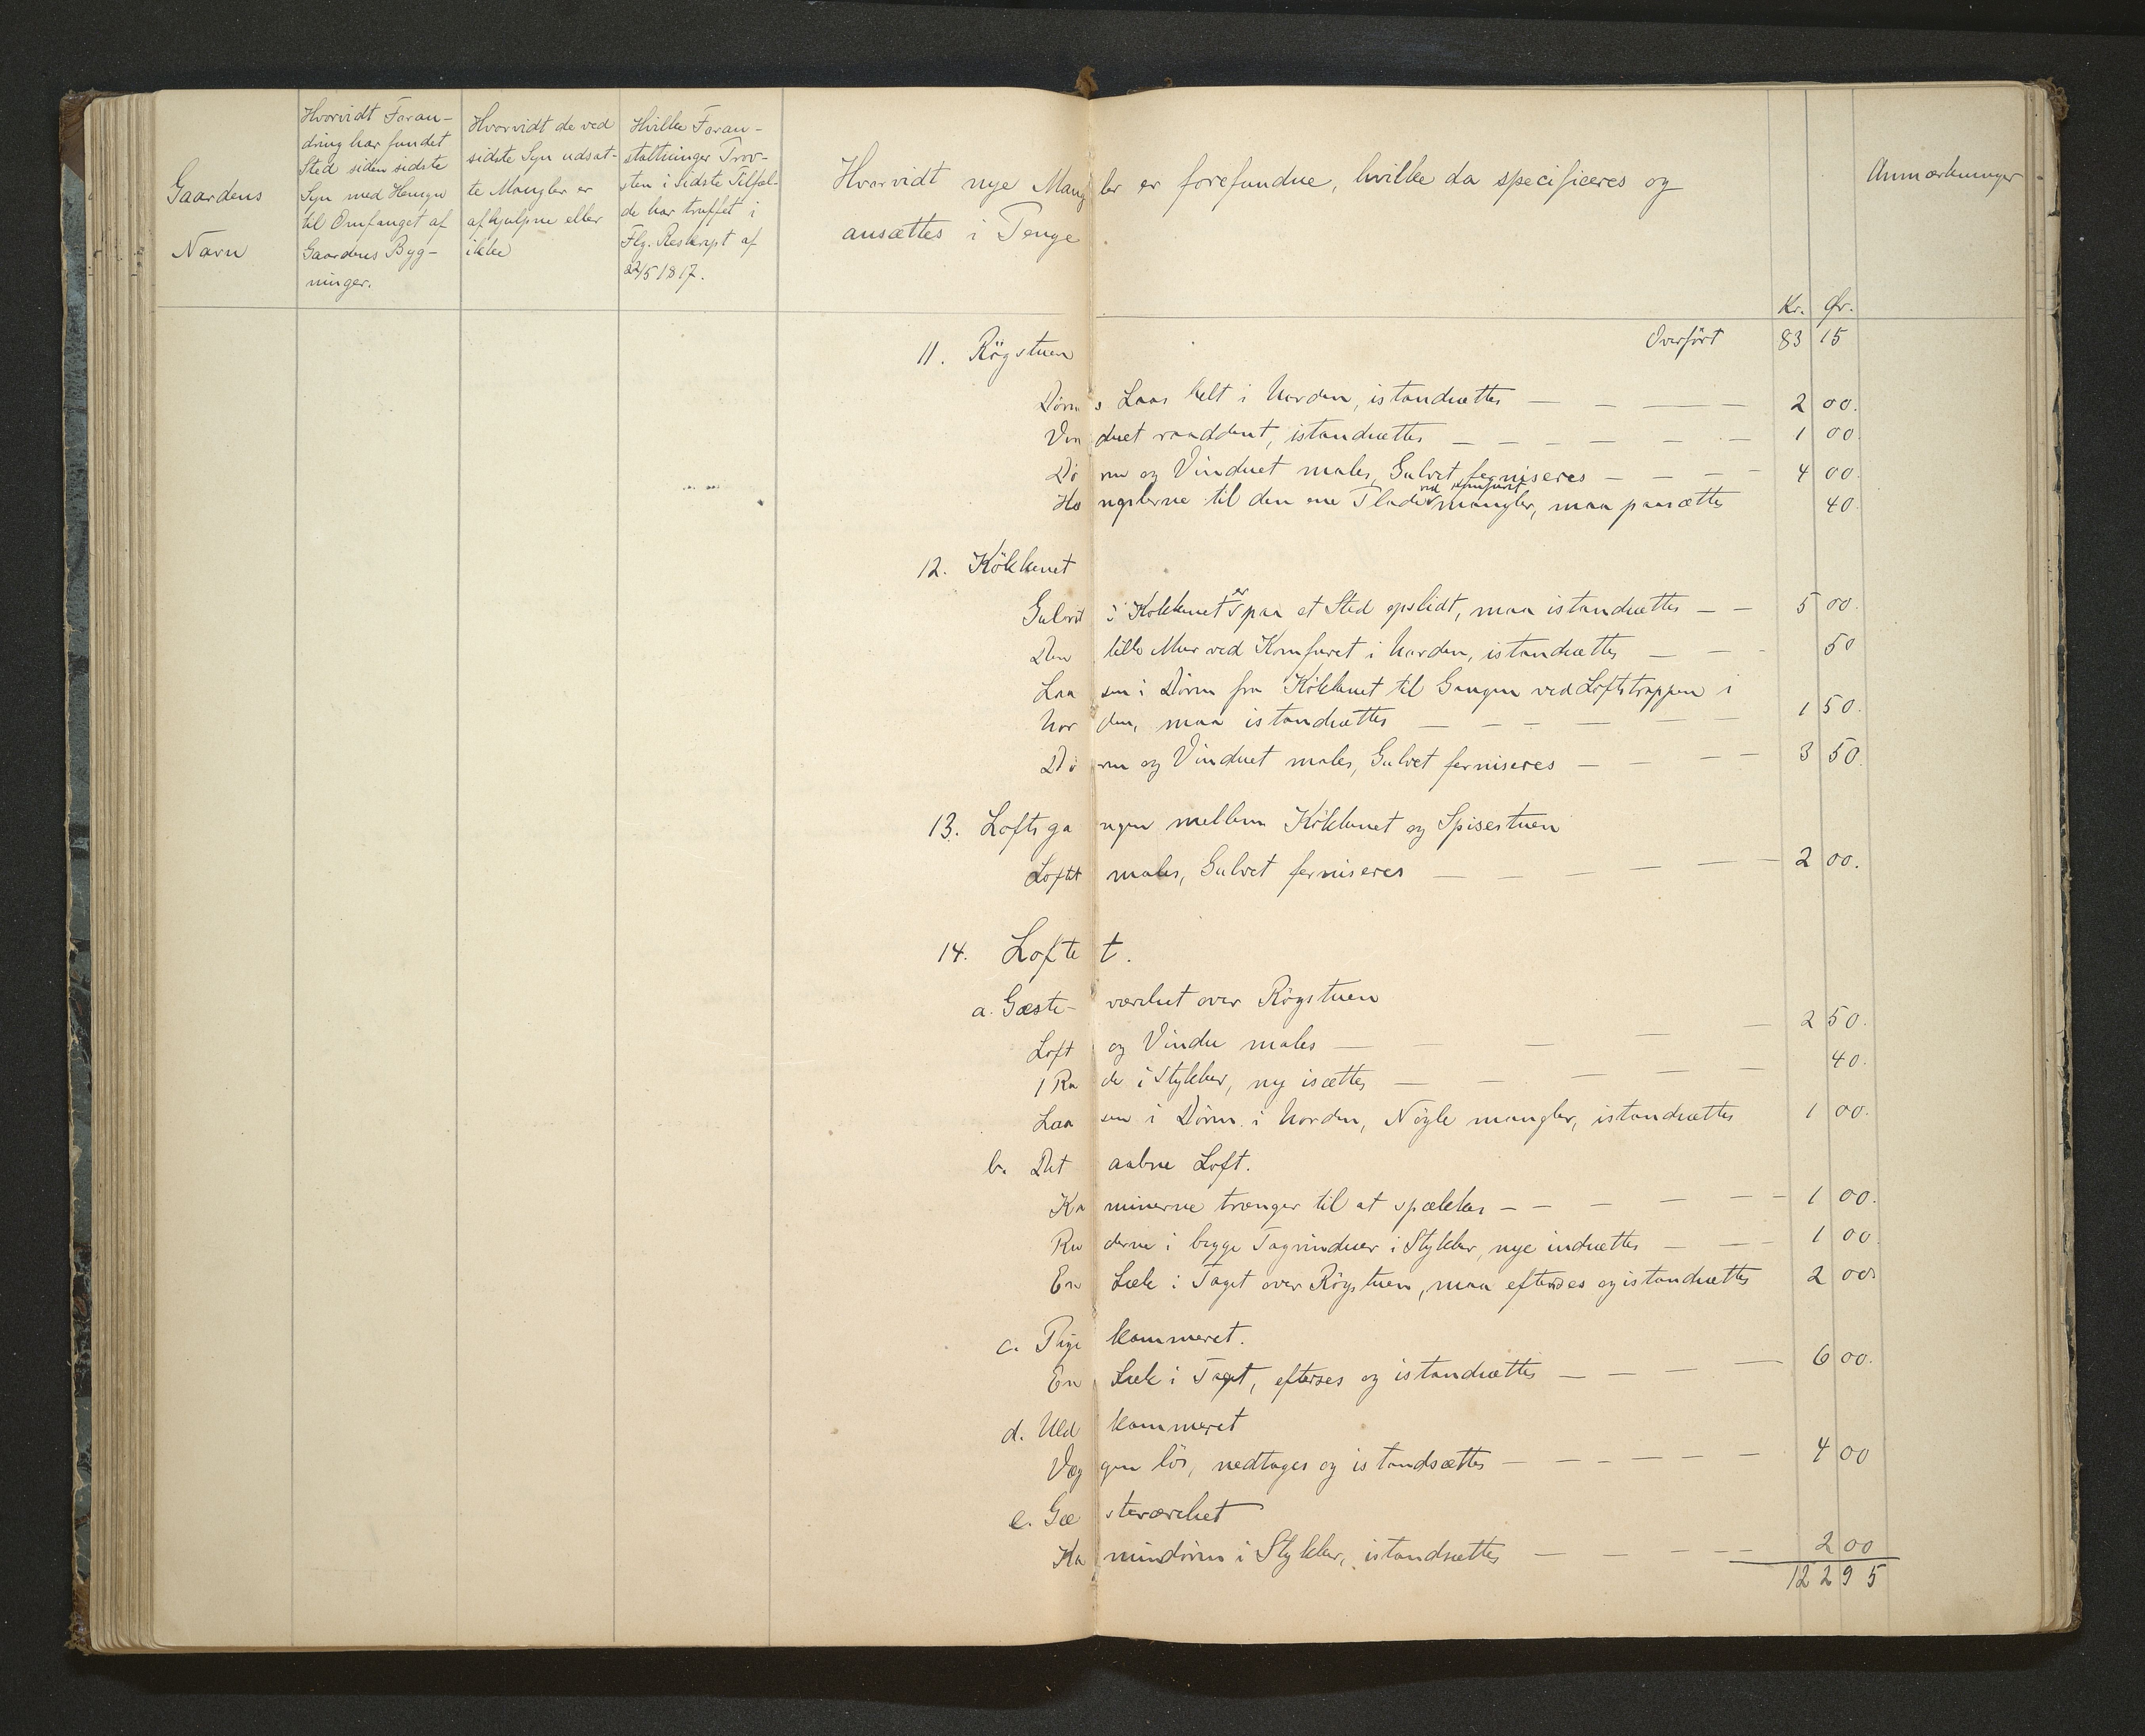 Gaardens
Navn
Hvorvidt Foran-
dring har fundet
Sted siden sidste
Syn med Hensyn
til Omfanget af
Gaardens Byg-
ninger.
Hvorvidt de ved
sidste Syn udsat-
te Mangler er
afhjulpne eller
ikke
Hvilke Foran-
staltninger Prov-
sten i sidste Tilfæl-
de har truffet i
Flg. Reskript af
22/5 1817.
Hvorvidt nye Mangler er forefundne, hvilke da specificeres og
ansættes i Penge
Anmærkninger
Kr. Ør.
Overført 83 15
11. Rögstuen
Dörens Laas helt i Uorden, istandsættes — — — — 2 00.
Vinduet raaddent, istandsættes — — — — — — 1 00
Dören og Vinduet males, Gulvet ferniseres — — — — 4 00
Hængslerne til den ene mangler, maa paasættes 40.
12. Kökkenet
Gulvet i Kökkenet er paa et Sted opslidt, maa istandsættes — — 5 00.
Den lille Mur ved Komfuret i Uorden, istandsættes — — - 50
Laasen i Dören fra Kökkenet til Gangen ved Loftstrappen i
Uorden, maa istandsættes — — — — — — 1 50.
Dören og Vinduet males, Gulvet ferniseres — — — — 3 50.
13. Loftsgangen mellem Kökkenet og Spisestuen
Loftet males, Gulvet ferniseres — — — — — — 2 00.
14. Loftet.
a. Gæsteværelset over Rögstuen
Loft og Vindue males — — — — — 2 50.
1 Rude i Stykker, ny isættes — — — — — 40.
Laasen i Dören i Uorden, Nögle mangler, istandsættes 1 00.
b. Det aabne Loft.
Kaminerne trænger til at spækkes — — — — — — 1 00.
Ruderne i begge Tagvinduer i Stykker, nye indsættes — — — 1 00.
En Læk i Taget over Rögstuen, maa efterses og istandsættes 2 00
c. Pigekammeret.
En Læk i Taget, efterses og istandsættes — — — — 6 00.
d. Uldkammeret
Væggen lös, nedtages og istandsættes — — — — — — 4 00
e. Gæsteværelset
Kamindören i Stykker, istandsættes — — — — — 2 00
122 95